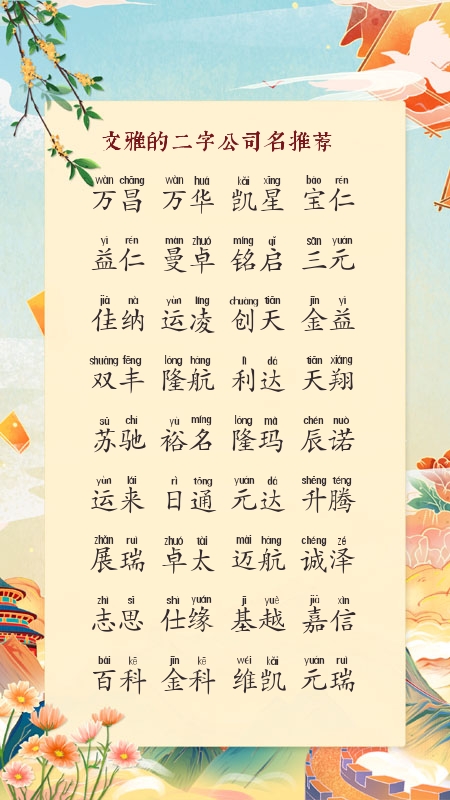 文雅的二字公司名推荐
wàn chāng wàn huá kǎi xīng bǎo rén
万昌 万华 凯星 宝仁
yì rén màn zhuó míng qǐ sān yuán
益仁 曼卓 铭启 三元
jiā nà yùn líng chuàng tiān jīn yì
佳纳 运凌 创天 金益
shuāng fēng lóng háng lì dá tiān xiáng
双丰 隆航 利达 天翔
sū chí yù míng lóng mǎ chén nuò
苏驰 裕名 隆玛 辰诺
yùn lái rì tōng yuán dá shēng téng
运来 日通 元达 升腾
zhǎn ruì zhuó tài mài háng chéng zé
展瑞 卓太 迈航 诚泽
zhì sī shì yuán jī yuè jiā xìn
志思 仕缘 基越 嘉信
bǎi kē jīn kē wéi kǎi yuán ruì
百科 金科 维凯 元瑞